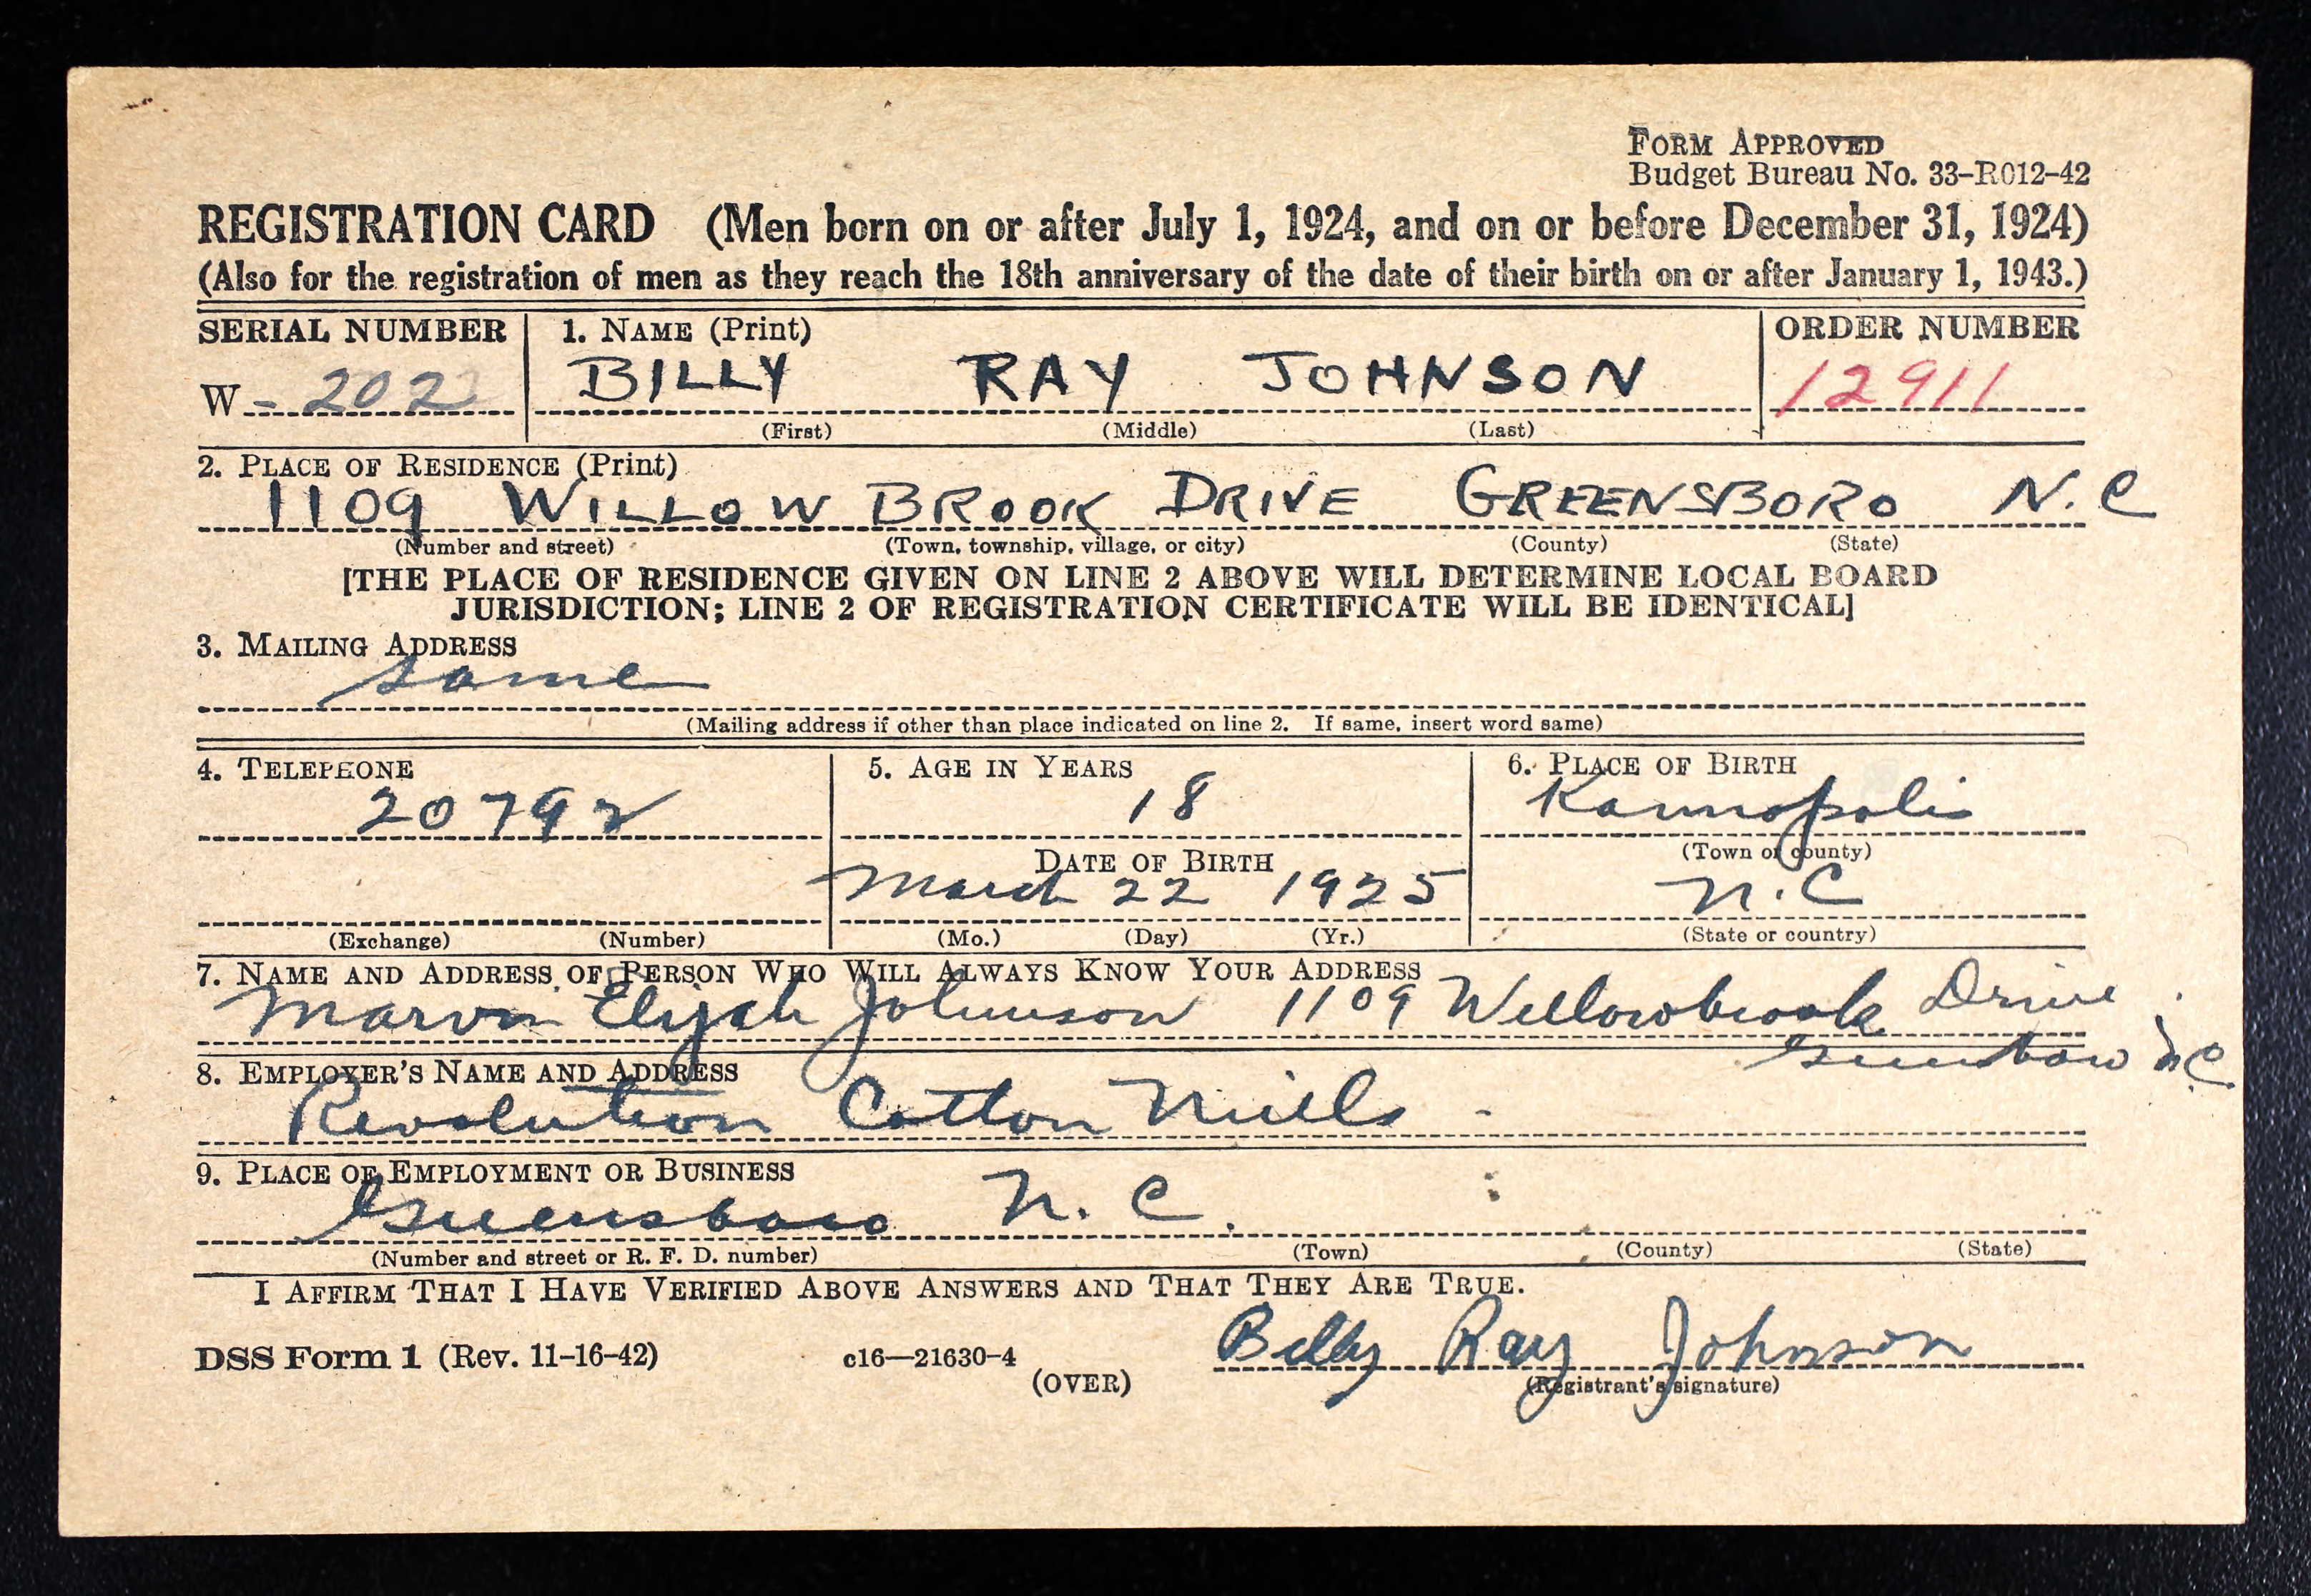 FORM APPROVED
Budget Bureau No. 33-R012-42
REGISTRATION CARD (Men born on or after July 1, 1924, and on or before December 31, 1924)
(Also for the registration of men as they reach the 18th anniversary of the date of their birth on or after January 1, 1943.)
SERIAL NUMBER 1. NAME (Print) ORDER NUMBER
W-202 BILLY RAY JOHNSON 12911
(First) (Middle) (Last)
2. PLACE OF RESIDENCE (Print)
1109 WILLOW BROOK DRIVE GREENSBORO N.C
(Number and street) (Town, township, village, or city) (County) (State)
[THE PLACE OF RESIDENCE GIVEN ON LINE 2 ABOVE WILL DETERMINE LOCAL BOARD
JURISDICTION; LINE 2 OF REGISTRATION CERTIFICATE WILL BE IDENTICAL]
3. MAILING ADDRESS
same
(Mailing address if other than place indicated on line 2. If same, insert word same)
4. TELEPHONE 5. AGE IN YEARS 6. PLACE OF BIRTH
20792 18 Kannopolis
(Town or county)
DATE OF BIRTH
March 22 1925 N.C
(Exchange) (Number) (Mo.) (Day) (Yr.) (State or country)
7. NAME AND ADDRESS OF PERSON WHO WILL ALWAYS KNOW YOUR ADDRESS
Marvin Elijah Johnson 1109 Willowbrook Drive
Greensboro N.C.
8. EMPLOYER'S NAME AND ADDRESS
Revolution Cotton Mills
9. PLACE OF EMPLOYMENT OR BUSINESS
Greensboro N.C.
(Number and street or R. F. D. number) (Town) (County) (State)
I AFFIRM THAT I HAVE VERIFIED ABOVE ANSWERS AND THAT THEY ARE TRUE.
Billy Ray Johnson
DSS Form 1 (Rev. 11-16-42) c16—21630-4
(OVER) (Registrant's signature)